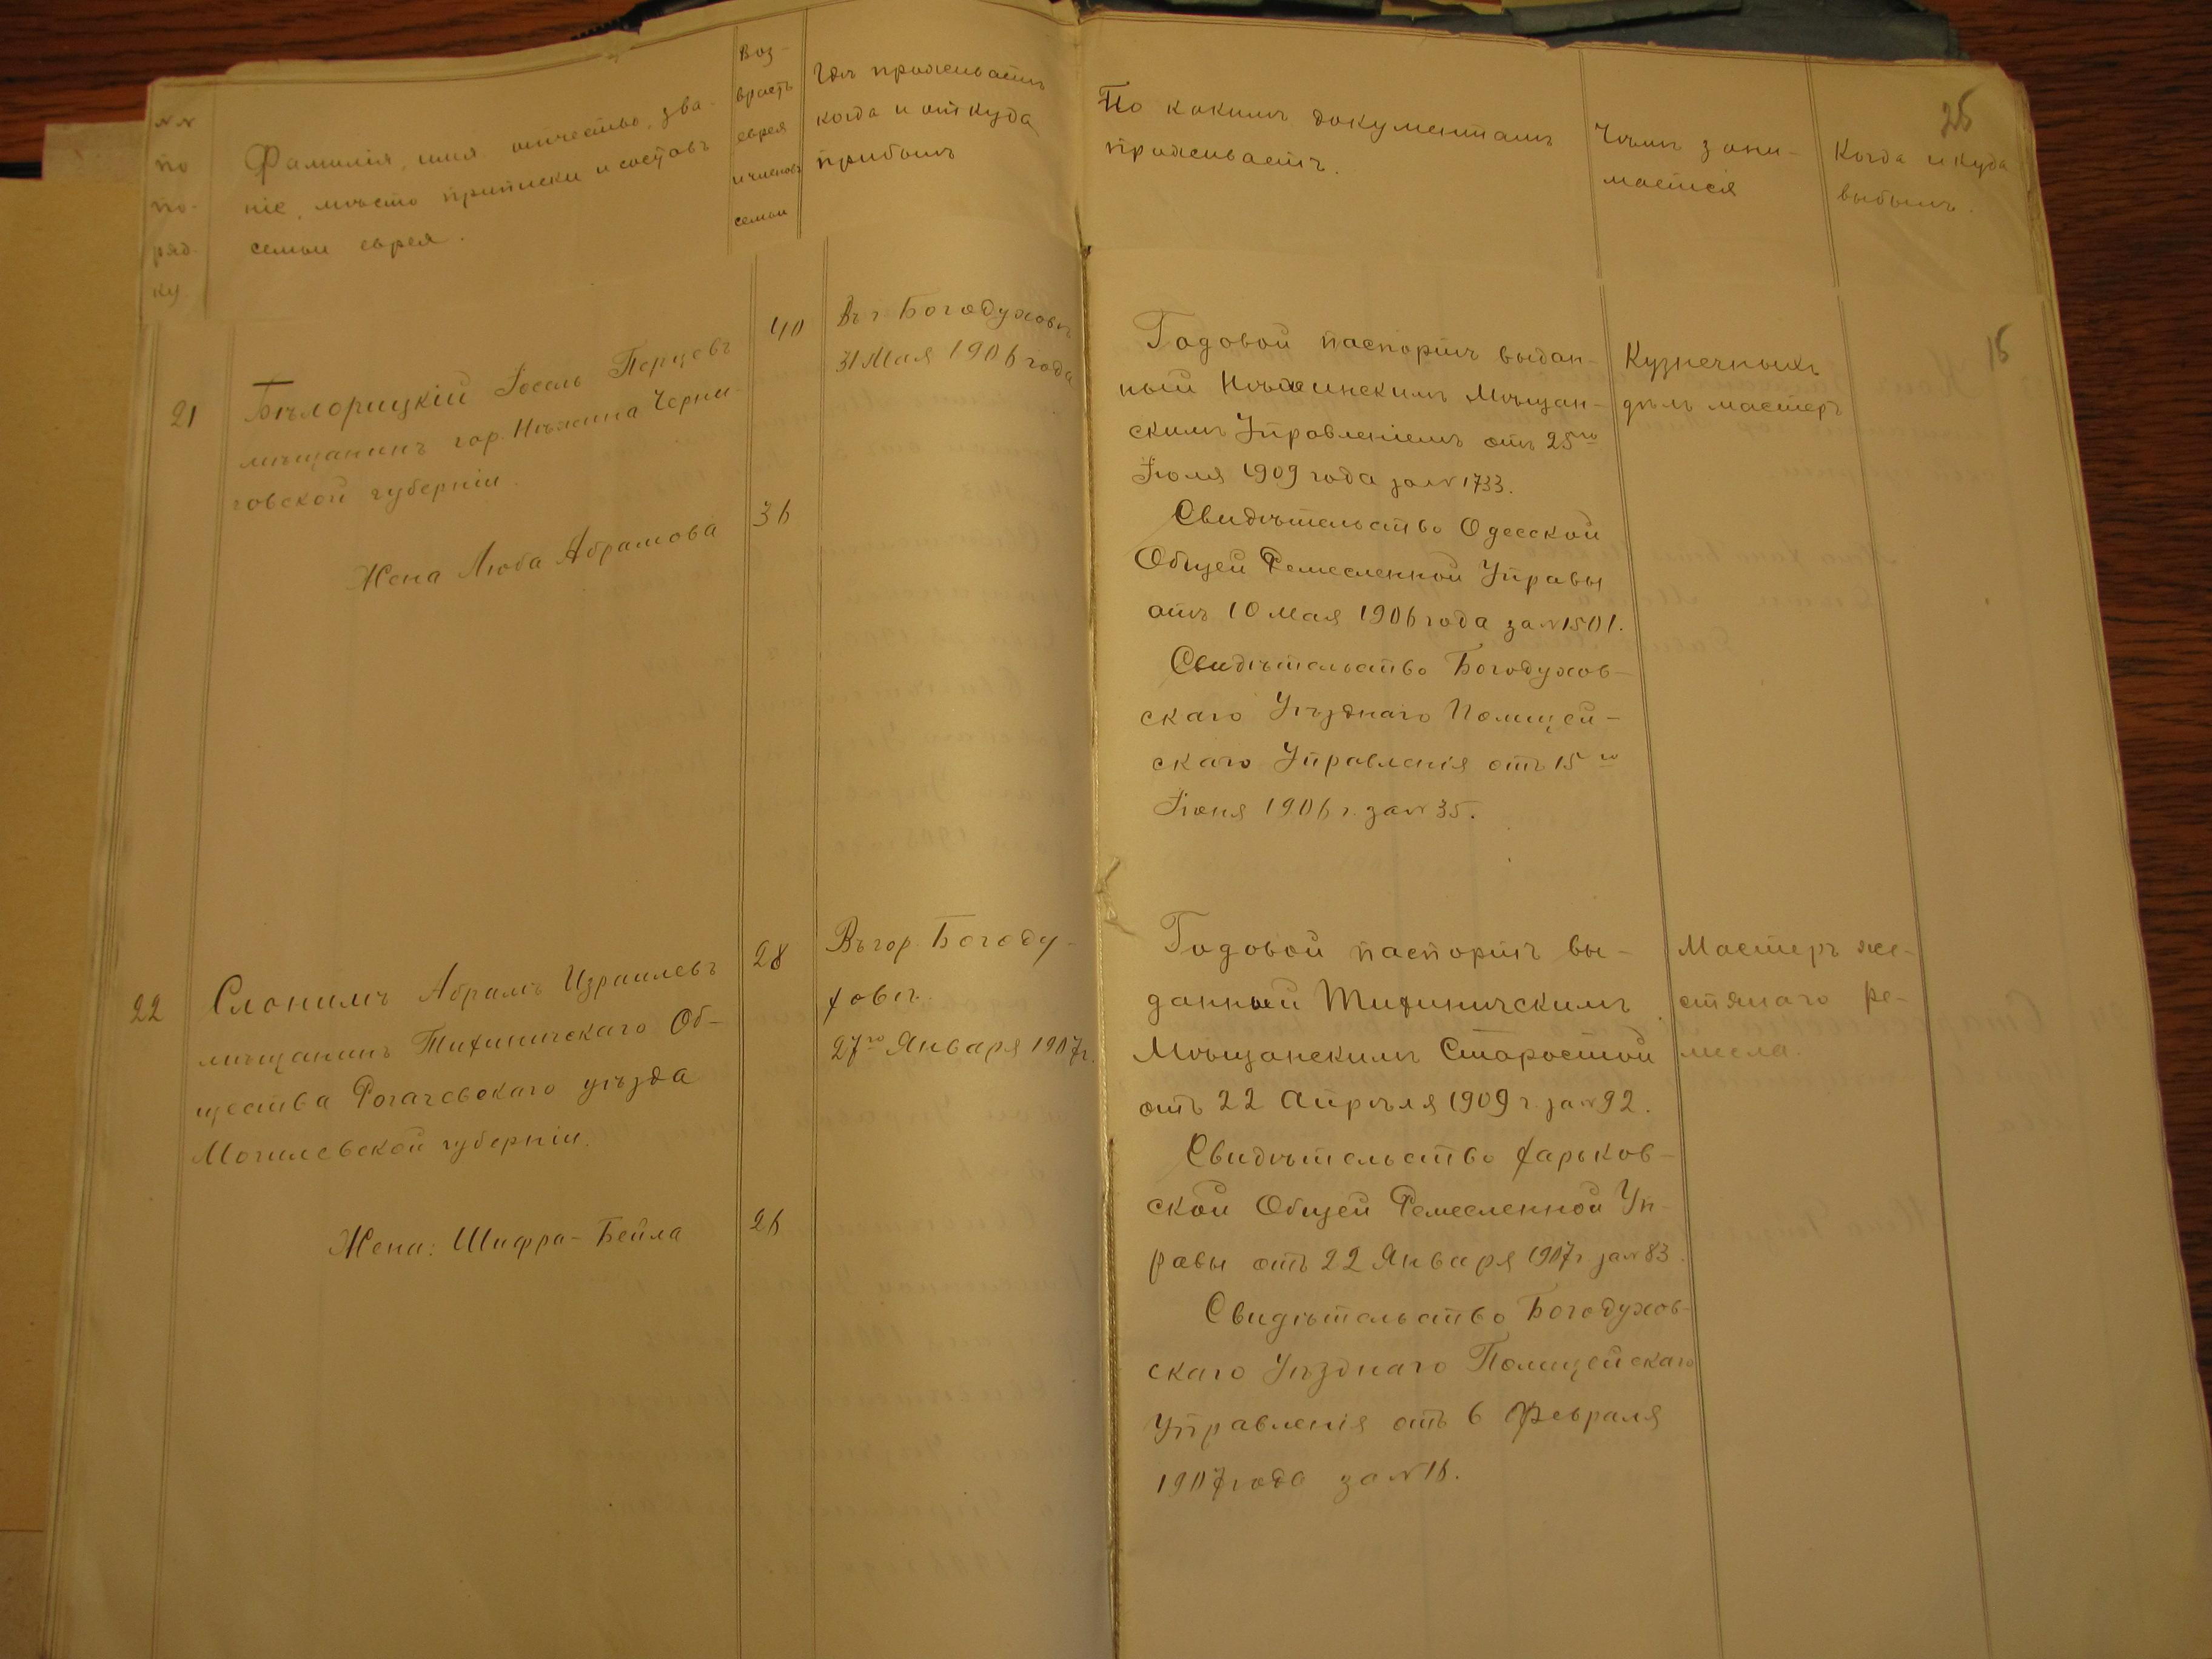 25
№№
по
по-
ряд-
ку.
Фамилія, имя, отчество, зва-
ніе, мѣсто приписки и составъ
семьи еврея.
Воз-
врастъ
еврея
и членовъ
семьи
Гдѣ проживаетъ
когда и откуда
прибылъ
По какимъ документамъ
проживаетъ.
Чѣмъ зани-
мается
Когда и куда
выбылъ.
15
21
Бѣлорицкій Іосель Перцовъ
мѣщанинъ гор. Нѣжина Черни-
говской губерніи.
Жена Люба Абрамова
40
36
Въ г. Богодуховѣ
31 Мая 1906 года
Годовой паспортъ выдан-
ный Нѣжинскимъ Мѣщан-
скимъ Управленіемъ отъ 25го
Іюля 1909 года за № 1733.
Свидѣтельство Одесской
Общей Ремесленной Управы
отъ 10 мая 1906 года за № 1501.
Свидѣтельство Богодухов-
скаго Уѣзднаго Полицей-
скаго Управленія отъ 15го
Іюня 1906 г. за № 35.
Кузнечныхъ
дѣлъ мастеръ
22
Слонимъ Абрамъ Израилевъ
мѣщанинъ Тихиничскаго Об-
щества Рогачевскаго уѣзда
Могилевской губерніи.
Жена: Шифра-Бейла
28
26
Въ гор. Богоду-
ховѣ
27го Января 1907 г.
Годовой паспортъ вы-
данный Тихиничскимъ
Мѣщанскимъ Старостой
отъ 22 Апрѣля 1909 г. за № 92.
Свидѣтельство Харьков-
ской Общей Ремесленной Уп-
равы отъ 22 Января 1907 г. за № 83.
Свидѣтельство Богодухов-
скаго Уѣзднаго Полицейскаго
Управленія отъ 6 Февраля
1907 года за № 16.
Мастеръ же-
стянаго ре-
месла.